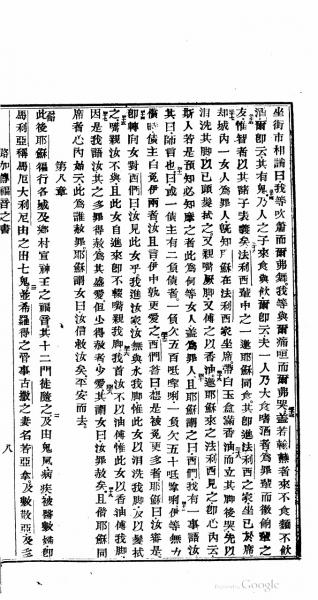 坐街市相謂曰我等吹簫而爾弗舞我等與爾蕩咺而爾弗哭蓋若翰者來不食麵不飲
酒爾卽云其有鬼乃人之子來食與飲爾卽云夫一人乃大食嗜酒者爲罪輩而徵餉輩之
友惟智者以其諸子表義矣法利西輩中之一邀耶穌同食其卽進法利西之家坐已於席
却城內一女人爲罪人旣知耶穌在法利西家坐席帶白玉盒滿香油而立其脚後哭先以
淚洗其脚以已頭髮拭之又親嘴厥脚又傅之以香油邀耶穌來之法利西見之卽心內云
斯人若是預知必知摩之者此爲何等女人蓋爲罪人且耶穌謂之曰西們我有一事語汝
其曰師言也曰或一債主有二負債者一負欠五百呧嗱唎一負欠五十呧嗱唎伊等無力
償時債主白免伊兩者汝且言伊中孰更愛之西們答曰想是被免更多者耶穌曰汝審是
卽轉向女對西們曰汝見此女乎我進汝家汝無與水我脚惟此女以淚洗我脚又以髮拭
之嘴親汝不與且此女自進來卽不輟嘴親我脚我首汝不以油傅惟此女以香油傅我脚
因是我語汝其之多罪得赦爲其盛愛但少得赦者少愛其謂女曰汝罪赦矣且偕耶穌同
席者心內始云此爲誰赦罪耶穌謂女曰汝信救汝矣平安而去
第八章
此後耶穌徧行各城及鄉村宣神王之福音其十二門徒隨之及由鬼風病疾被醫數婦卽
馬利亞稱馬厄大利尼由之出七鬼並希羅得之管事古撒之妻名若亞拿及數散亞及多
路加傳福音之書
八
Google